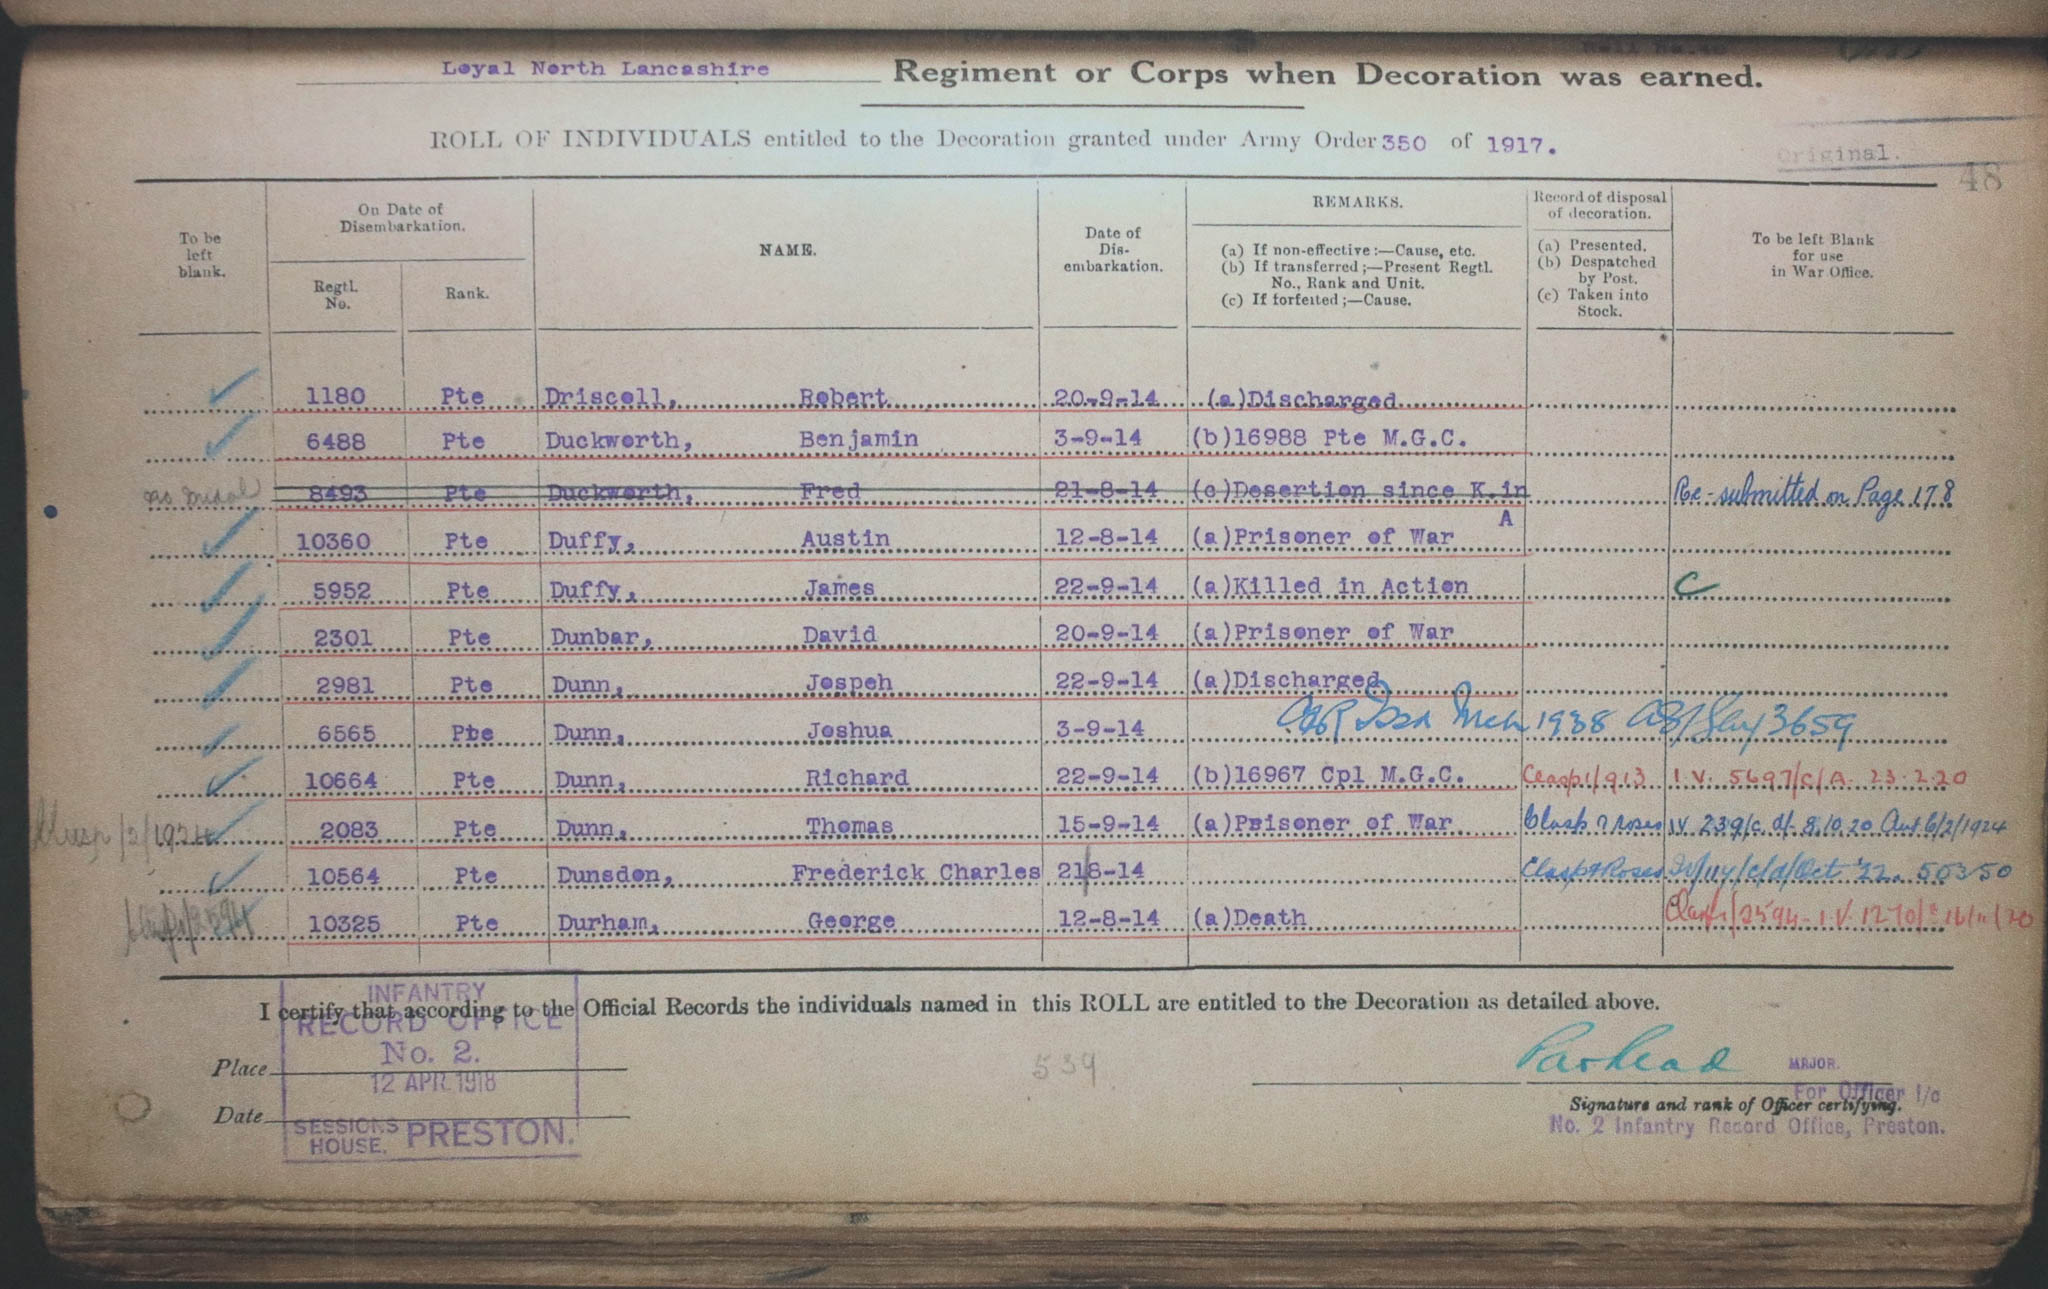 Loyal North Lancashire Regiment or Corps when Decoration was earned.
ROLL OF INDIVIDUALS entitled to the Decoration granted under Army Order 350 of 1917.
Original.
48
To be left blank.
On Date of Disembarkation.
Regtl. No.
Rank.
NAME.
Date of Dis-embarkation.
REMARKS.
(a) If non-effective :—Cause, etc.
(b) If transferred ;—Present Regtl. No., Rank and Unit.
(c) If forfeited ;—Cause.
Record of disposal of decoration.
(a) Presented.
(b) Despatched by Post.
(c) Taken into Stock.
To be left Blank for use in War Office.
1180 Pte Driscoll, Robert 20-9-14 (a)Discharged
6488 Pte Duckworth, Benjamin 3-9-14 (b)16988 Pte M.G.C.
no medal 8493 Pte Duckworth, Fred 21-8-14 (c)Desertion since K.in A Re-submitted on Page 178
10360 Pte Duffy, Austin 12-8-14 (a)Prisoner of War
5952 Pte Duffy, James 22-9-14 (a)Killed in Action C
2301 Pte Dunbar, David 20-9-14 (a)Prisoner of War
2981 Pte Dunn, Jospeh 22-9-14 (a)Discharged
6565 Pte Dunn, Joshua 3-9-14 1938 3659
10664 Pte Dunn, Richard 22-9-14 (b)16967 Cpl M.G.C. Clasp 1/913 I.V. 5697/C/A. 23.2.20
Clasp /2/1924 2083 Pte Dunn, Thomas 15-9-14 (a)Prisoner of War Clasp & roses IV 239/c d/ 8.10.20 Aut 6/2/1924
10564 Pte Dunsdon, Frederick Charles 218-14 Clasp & Roses Oct '22. 50350
10325 Pte Durham, George 12-8-14 (a)Death Clasp /2594 I.V. 1270/ 16/11/20
I certify that according to the Official Records the individuals named in this ROLL are entitled to the Decoration as detailed above.
INFANTRY
RECORD OFFICE
No. 2.
12 APR. 1918
SESSIONS HOUSE, PRESTON.
Place
Date
539
MAJOR.
For Officer i/c
Signature and rank of Officer certifying.
No. 2 Infantry Record Office, Preston.